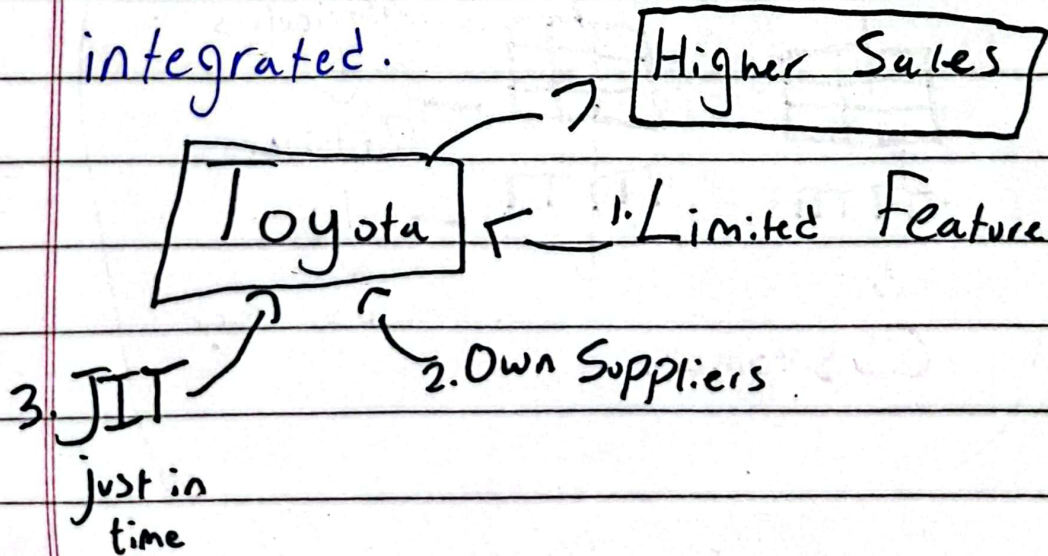 integrated.
Higher Sales
Toyota
1. Limited Feature
2. Own Suppliers
3. JIT
just in
time